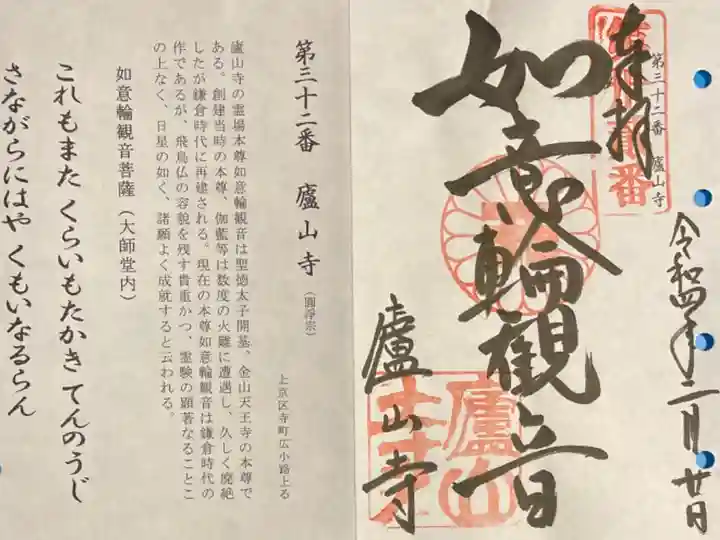 奉拝
第三十二番　廬山寺
如意輪観音
廬山寺
令和四年二月廿日
廬山
第三十二番　廬山寺（圓浄宗）
上京区寺町広小路上る
廬山寺の霊場本尊如意輪観音は聖徳太子開基、金山天王寺の本尊で
ある。創建当時の本尊、伽藍等は数度の火難に遭遇し、久しく廃絶
したが鎌倉時代に再建される。現在の本尊如意輪観音は鎌倉時代の
作であるが、飛鳥仏の容貌を残す貴重かつ、霊験の顕著なることこ
の上なく、日星の如く、諸願よく成就すると云われる。
如意輪観音菩薩（大師堂内）
これもまた くらいもたかき てんのうじ
さながらにはや くもいなるらん